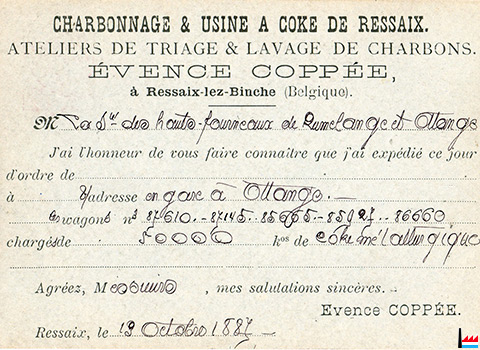 CHARBONNAGE & USINE A COKE DE RESSAIX.
ATELIERS DE TRIAGE & LAVAGE DE CHARBONS.
ÉVENCE COPPÉE,
à Ressaix-lez-Binche (Belgique).
M La Sté des hauts-fourneaux de Rumelange et Ottange
J'ai l'honneur de vous faire connaître que j'ai expédié ce jour
d'ordre de
à l'adresse en gare à Ottange. —
wagons ns 87610.-87145.-85665-85027.-86660
chargés de 50000 kos de coke métallurgique
Agréez, Messieurs , mes salutations sincères.
Evence COPPÉE.
Ressaix, le 19 octobre 1887 —